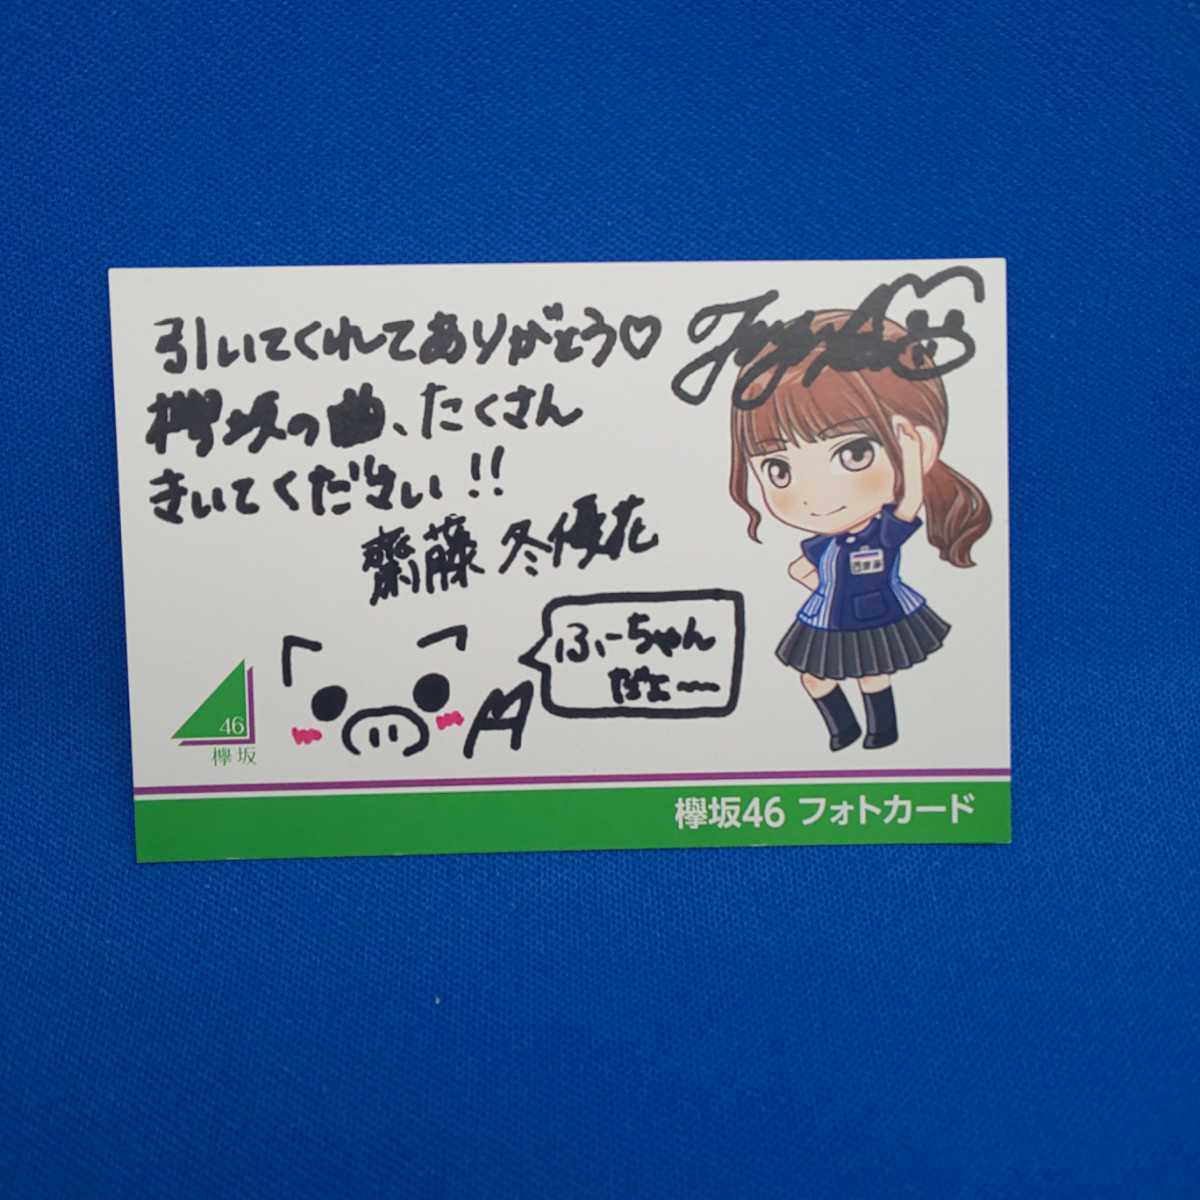 引いてくれてありがとう♡
欅坂の曲、たくさん
きいてください!!
齋藤 冬優花
ふーちゃん
だよ〜
46
欅坂
欅坂46 フォトカード